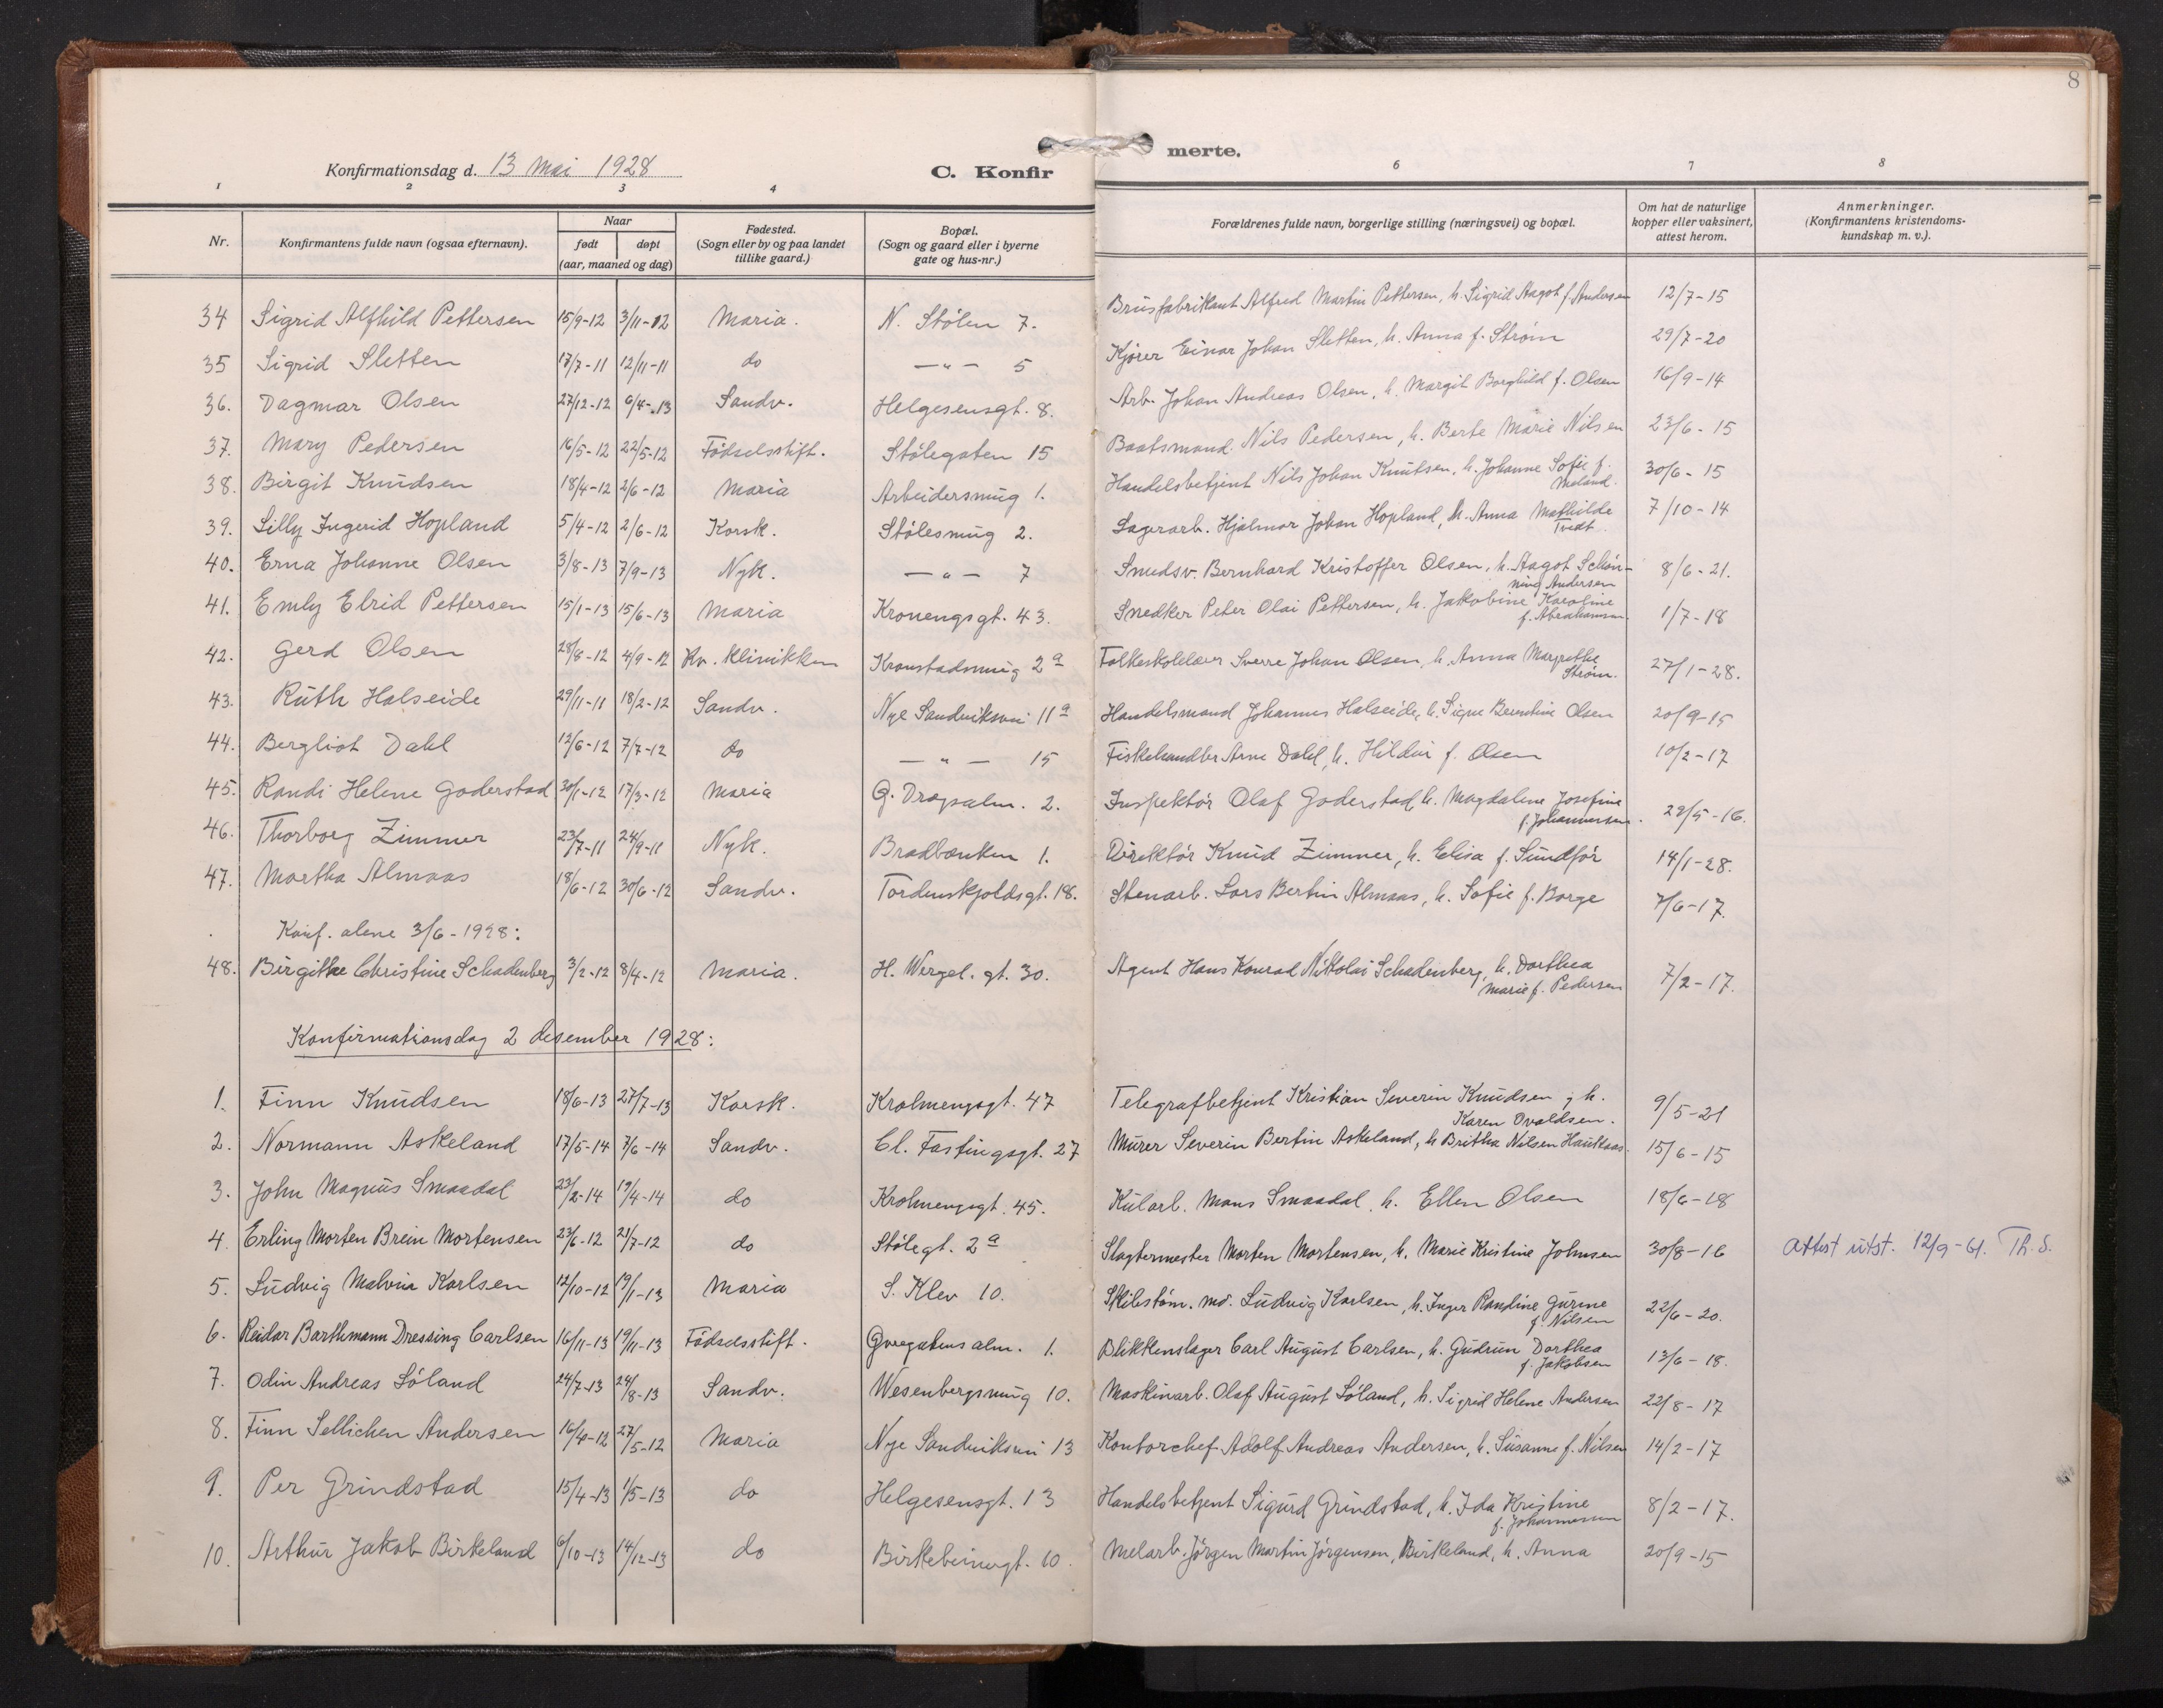 8
Konfirmationsdag d. 13 Mai 1928
C. Konfir merte.
1 2 3 4 6 7 8
Nr.
Konfirmantens fulde navn (ogsaa efternavn).
Naar
født døpt
(aar, maaned og dag)
Fødested.
(Sogn eller by og paa landet
tillike gaard.)
Bopæl.
(Sogn og gaard eller i byerne
gate og hus-nr.)
Forældrenes fulde navn, borgerlige stilling (næringsvei) og bopæl.
Om hat de naturlige
kopper eller vaksinert,
attest herom.
Anmerkninger.
(Konfirmantens kristendoms-
kundskap m. v.).
34 Sigrid Alfhild Pettersen 15/9-12 3/11-12 Maria. N. Stølen 7. Brusfabrikant Alfred Martin Pettersen, h. Sigrid Aagot f. Andersen 12/7-15
35 Sigrid Sletten 17/7-11 12/11-11 do —"— 5 Kjører Einar Johan Sletten, h. Anna f. Strøm 29/7-20
36. Dagmar Olsen 27/12-12 6/4-13 Sandv. Helgesensgt. 8. Arb. Johan Andreas Olsen, h. Margit Borghild f. Olsen 16/9-14
37. Mary Pedersen 16/5-12 22/5-12 Fødselsstift. Stølegaten 15 Baatsmand. Nils Pedersen, h. Berte Marie Nilsen 23/6-15
38. Birgit Knudsen 18/4-12 2/6-12 Maria Arbeidersmug 1. Handelsbetjent Nils Johan Knutsen, h. Johanne Sofie f. Meland. 30/6-15
39. Lilly Ingerid Hopland 5/4-12 2/6-12 Korsk. Stølesmug 2. Lagerarb. Hjalmar Johan Hopland, h. Anna Mathilde Tvedt. 7/10-14
40. Erna Johanne Olsen 3/8-13 7/9-13 Nyk. —"— 7 Smedsv. Bernhard Kristoffer Olsen, h. Aagot Schøn-
ning Andersen 8/6-21.
41. Emly Elrid Pettersen 15/1-13 15/6-13 Maria Kronengsgt. 43. Snedker Peter Olai Pettersen, h. Jakobine Karoline
f. Abrahamsen. 1/7-18
42. Gerd Olsen 28/8-12 4/9-12 Kv. klinikken Kronstadsmug 2a Folkeskolelærer Sverre Johan Olsen, h. Anna Margrethe
Strøm. 27/1-28.
43. Ruth Halseide 29/11-11 18/2-12 Sandv. Nye Sandviksvei 11a Handelsmand Johannes Halseide, h. Signe Berentine Olsen 20/9-15
44. Bergliot Dahl 12/6-12 7/7-12 do —"— 15 Fiskehandler Arne Dahl, h. Hildur f. Olsen 10/2-17
45. Randi Helene Goderstad 30/1-12 17/3-12 Maria Ø. Dregsalm. 2. Inspektør Olaf Goderstad, h. Magdalene Josefine
f. Johannessen. 29/5-16.
46. Thorborg Zimmer 23/7-11 24/9-11 Nyk. Bradbænken 1. Direktør Knud Zimmer, h. Elisa f. Sundfør 14/1-28.
47. Martha Almaas 18/6-12 30/6-12 Sandv. Tordenskjoldsgt. 18. Stenarb. Lars Bertin Almaas, h. Sofie f. Borge 7/6-17.
Konf. alene 3/6-1928:
48. Birgithe Christine Schadenberg 3/2-12 8/4-12 Maria. H. Wergel. gt. 30. Agent Hans Konrad Nikolai Schadenberg, h. Dorthea
Marie f. Pedersen 7/2-17.
Konfirmationsdag 2 desember 1928:
1. Finn Knudsen 18/6-13 27/7-13 Korsk. Krohnengsgt. 47 Telegrafbetjent Kristian Severin Knudsen, h.
Karen Ovaldsen. 9/5-21
2. Normann Askeland 17/5-14 7/6-14 Sandv. Cl. Fastingsgt. 27 Murer Severin Bertin Askeland, h. Britha Nilsen Haukaas. 15/6-15
3. John Magnus Smaadal 23/2-14 19/4-14 do Krohnengsgt. 45. Kularb. Mons Smaadal, h. Ellen Olsen 18/6-18
4. Erling Morten Brein Mortensen 23/6-12 21/7-12 do Stølegt. 2a Slagtermester Morten Mortensen, h. Marie Kristine Johnsen 30/8-16 Attest utst. 12/9-61. Th. S.
5. Ludvig Malvin Karlsen 12/10-12 19/1-13 Maria S. Klev 10. Skibstøm. md. Ludvig Karlsen, h. Inger Randine Gurine
f. Nilsen 22/6-20.
6. Reidar Barthmann Dressing Carlsen 16/11-13 19/11-13 Fødselsstift. Øvregatens alm. 1. Blikkenslager Carl August Carlsen, h. Gudrun Dorthea
f. Jakobsen 13/6-18.
7. Odin Andreas Søland 24/7-13 24/8-13 Sandv. Wesenbergsmug 10. Maskinarb. Olaf August Søland, h. Sigrid Helene Andersen 22/8-17
8. Finn Sellichen Andersen 16/4-12 27/5-12 Maria Nye Sandviksvei 13 Kontorchef Adolf Andreas Andersen, h. Susanne f. Nilsen 14/2-17
9. Per Grindstad 15/4-13 1/5-13 do Helgesensgt. 13 Handelsbetjent Sigurd Grindstad, h. Ida Kristine
f. Johannessen 8/2-17.
10. Arthur Jakob Birkeland 6/10-13 14/12-13 do Birkebeinergt. 10. Melarb. Jørgen Martin Jørgensen, Birkeland, h. Anna 20/9-15